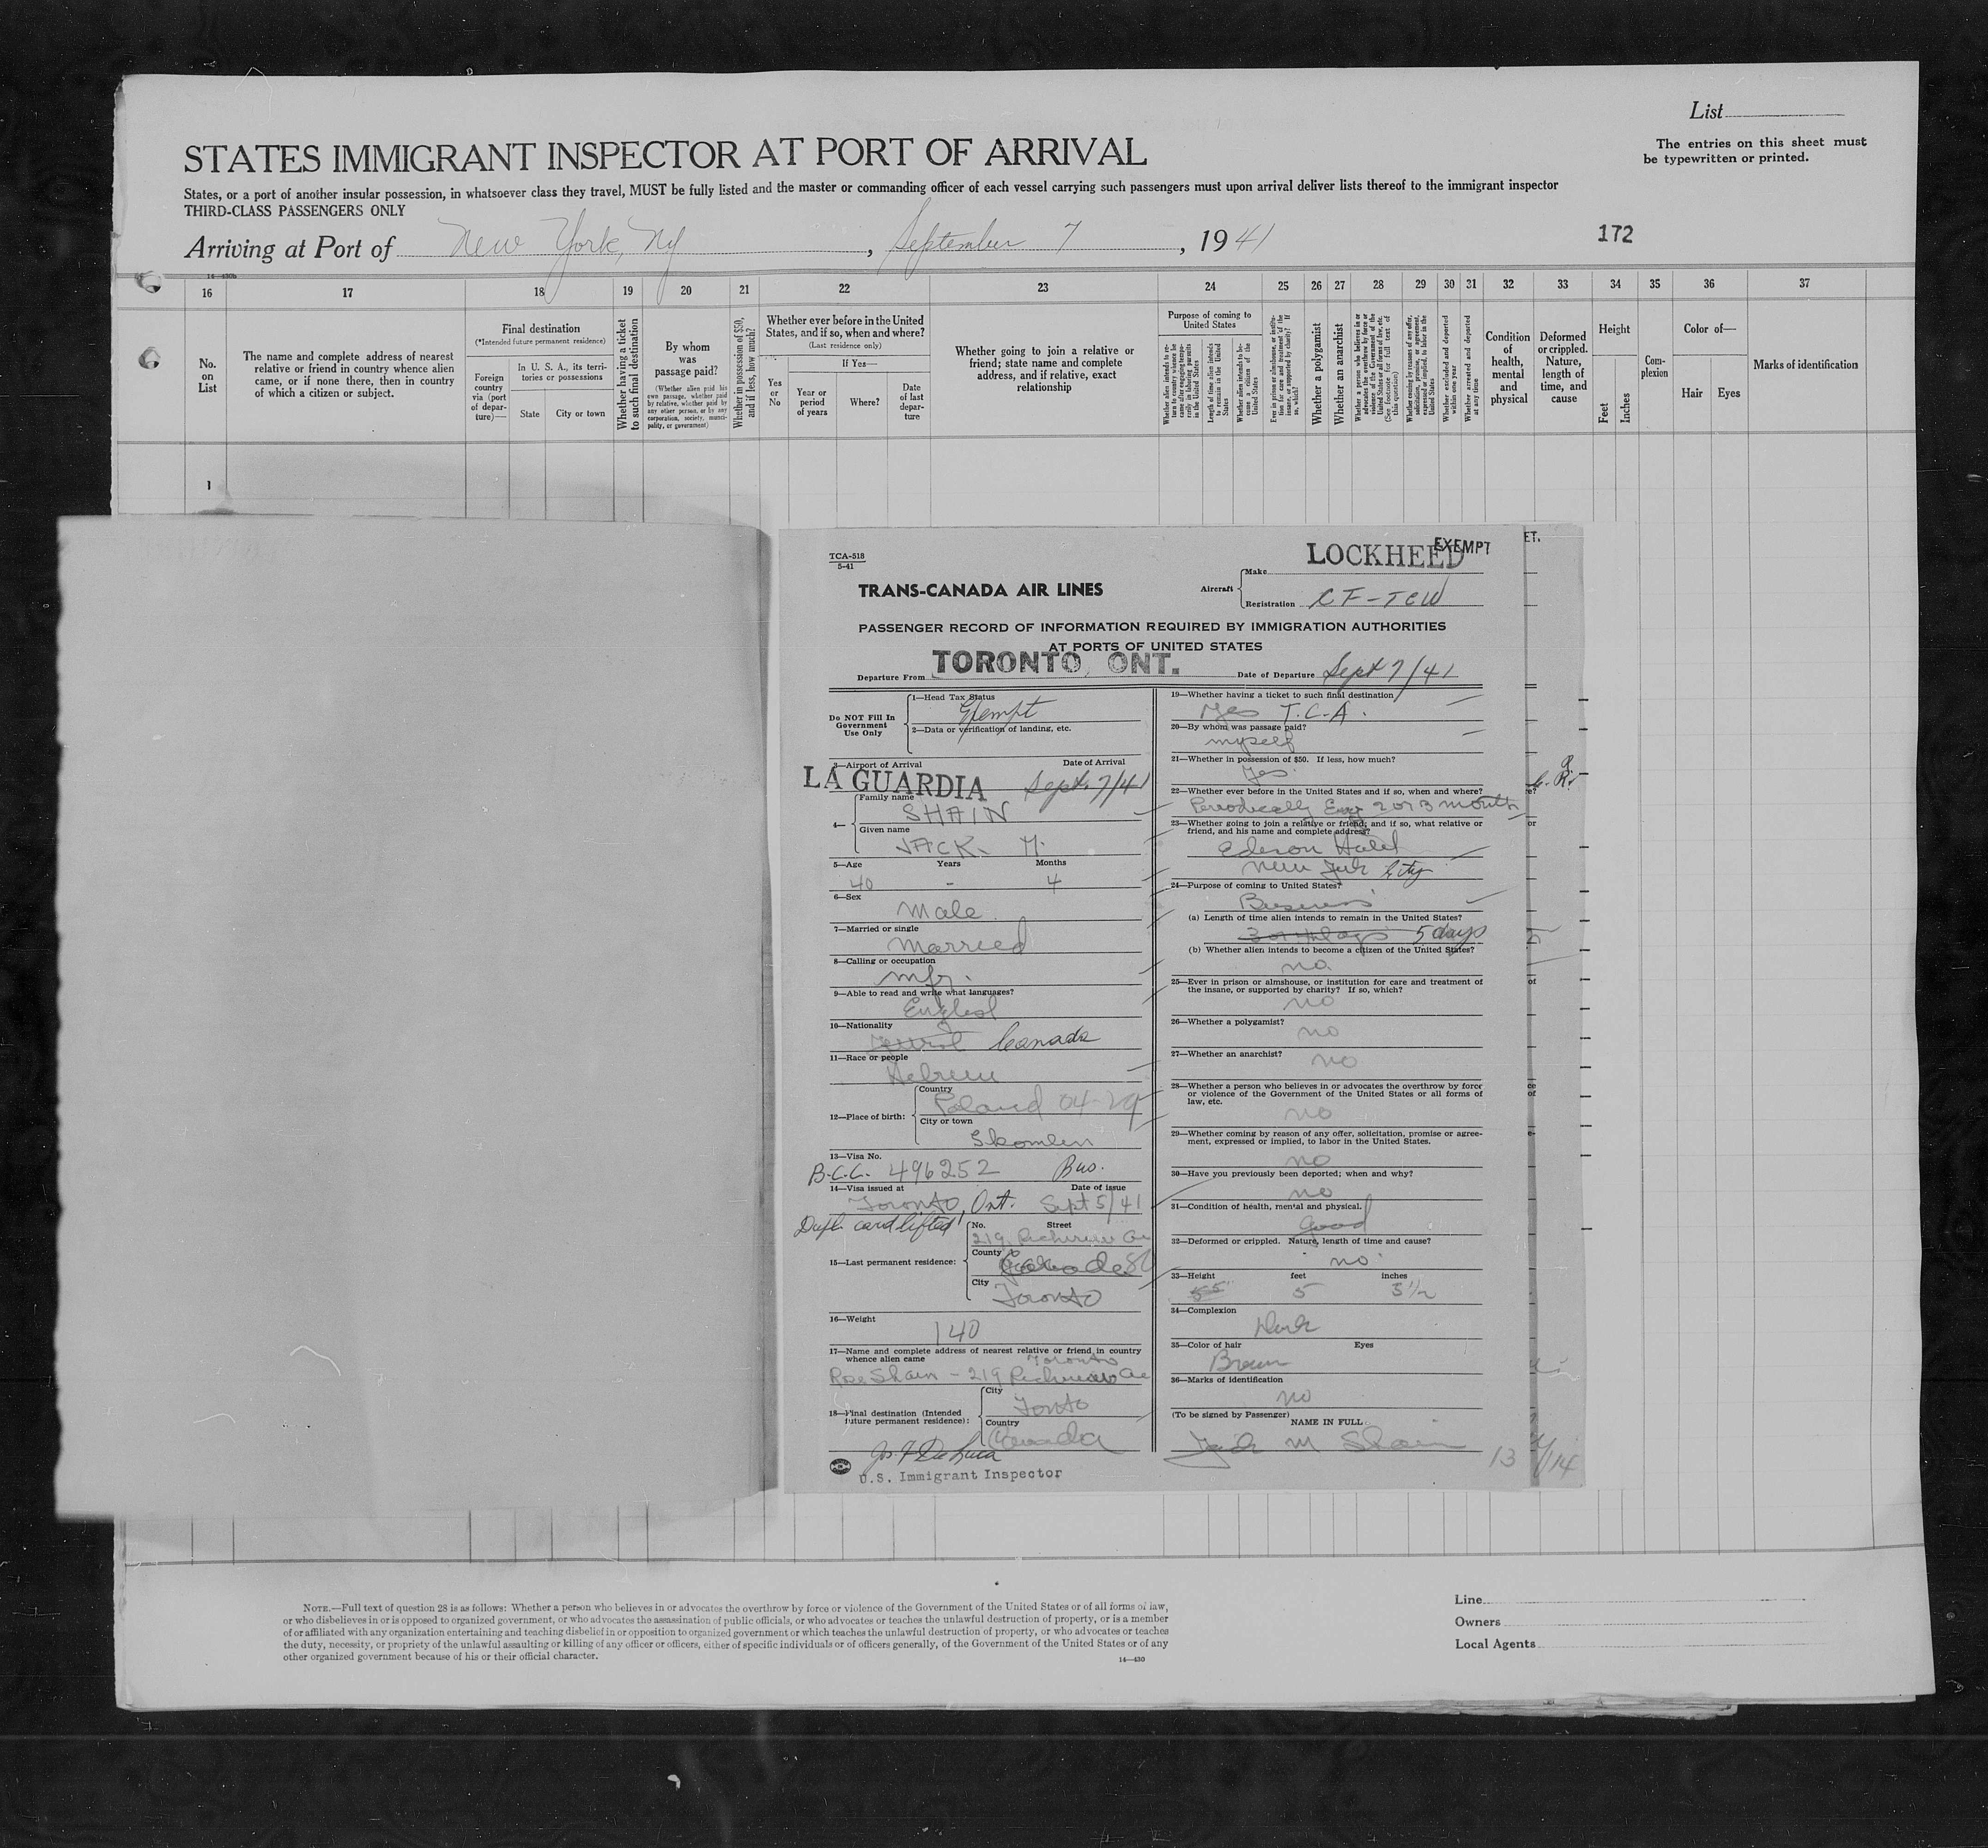 List
The entries on this sheet must
be typewritten or printed.
STATES IMMIGRANT INSPECTOR AT PORT OF ARRIVAL
States, or a port of another insular possession, in whatsoever class they travel, MUST be fully listed and the master or commanding officer of each vessel carrying such passengers must upon arrival deliver lists thereof to the immigrant inspector
THIRD-CLASS PASSENGERS ONLY
Arriving at Port of New York, NY, September 7, 1941
172
16 17 18 19 20 21 22 23 24 25 26 27 28 29 30 31 32 33 34 35 36 37
No. on List
The name and complete address of nearest
relative or friend in country whence alien
came, or if none there, then in country
of which a citizen or subject.
Final destination
(*Intended future permanent residence)
Foreign country via (port of departure)—
In U. S. A., its territories or possessions
State
City or town
Whether having a ticket to such final destination
By whom was passage paid?
(Whether alien paid his own passage, whether paid by relative, whether paid by any other person, or by any corporation, society, municipality, or government)
Whether in possession of $50, and if less, how much?
Whether ever before in the United
States, and if so, when and where?
(Last residence only)
Yes or No
If Yes—
Year or period of years
Where?
Date of last departure
Whether going to join a relative or
friend; state name and complete
address, and if relative, exact
relationship
Purpose of coming to
United States
Whether a polygamist
Whether an anarchist
Condition of health, mental and physical
Deformed or crippled. Nature, length of time, and cause
Height
Feet
Inches
Complexion
Color of—
Hair
Eyes
Marks of identification
1
TCA-518
5-41
LOCKHEED
EXEMPT
TRANS-CANADA AIR LINES
Aircraft
Make
Registration CF-TCW
PASSENGER RECORD OF INFORMATION REQUIRED BY IMMIGRATION AUTHORITIES
AT PORTS OF UNITED STATES
Departure From TORONTO, ONT. Date of Departure Sept 7/41
Do NOT Fill In Government Use Only
1—Head Tax Status
Exempt
2—Data or verification of landing, etc.
3—Airport of Arrival Date of Arrival
LA GUARDIA Sept. 7/41
4—
Family name
SHAIN
Given name
JACK M.
5—Age Years Months
40 - 4
6—Sex
Male
7—Married or single
Married
8—Calling or occupation
mfr.
9—Able to read and write what languages?
English
10—Nationality
Canada
11—Race or people
Hebrew
12—Place of birth:
Country
Poland 04-29
City or town
Skomlin
13—Visa No.
B.C.C. 496252 Bus.
14—Visa issued at Date of issue
Toronto, Ont. Sept 5/41
Dupl. card lifted
15—Last permanent residence:
No. Street
219
County
City
Toronto
16—Weight
140
17—Name and complete address of nearest relative or friend in country
whence alien came
Toronto
Rose Shain - 219
18—Final destination (Intended
future permanent residence):
City
Tonto
Country
Canada
Jos. F. DeLuca
U.S. Immigrant Inspector
19—Whether having a ticket to such final destination
Yes T.C.A.
20—By whom was passage paid?
myself
21—Whether in possession of $50. If less, how much?
Yes
22—Whether ever before in the United States and if so, when and where?
Periodically Every 2 or 3 months
23—Whether going to join a relative or friend; and if so, what relative or
friend, and his name and complete address?
Edison Hotel
New York City
24—Purpose of coming to United States?
Business
(a) Length of time alien intends to remain in the United States?
3 or 4 days 5 days
(b) Whether alien intends to become a citizen of the United States?
no
25—Ever in prison or almshouse, or institution for care and treatment of
the insane, or supported by charity? If so, which?
no
26—Whether a polygamist?
no
27—Whether an anarchist?
no
28—Whether a person who believes in or advocates the overthrow by force
or violence of the Government of the United States or all forms of
law, etc.
no
29—Whether coming by reason of any offer, solicitation, promise or agree-
ment, expressed or implied, to labor in the United States.
no
30—Have you previously been deported; when and why?
no
31—Condition of health, mental and physical.
good
32—Deformed or crippled. Nature, length of time and cause?
no
33—Height feet inches
5 5½
34—Complexion
Dark
35—Color of hair Eyes
Brown
36—Marks of identification
no
(To be signed by Passenger) NAME IN FULL
Jack M Shain
13
14
NOTE.—Full text of question 28 is as follows: Whether a person who believes in or advocates the overthrow by force or violence of the Government of the United States or of all forms of law,
or who disbelieves in or is opposed to organized government, or who advocates the assassination of public officials, or who advocates or teaches the unlawful destruction of property, or is a member
of or affiliated with any organization entertaining and teaching disbelief in or opposition to organized government or which teaches the unlawful destruction of property, or who advocates or teaches
the duty, necessity, or propriety of the unlawful assaulting or killing of any officer or officers, either of specific individuals or of officers generally, of the Government of the United States or of any
other organized government because of his or their official character.
14—430
Line
Owners
Local Agents